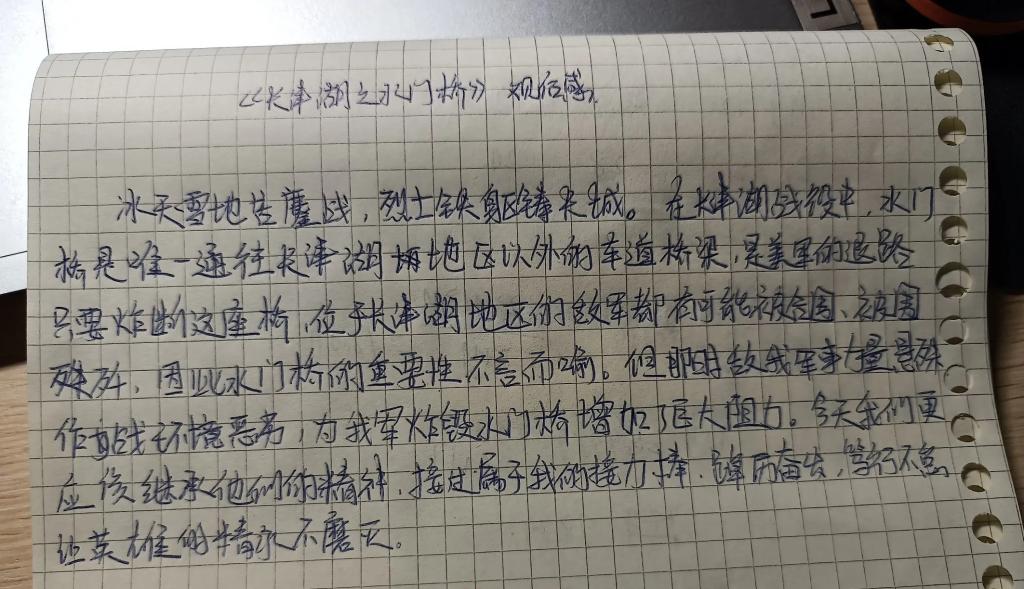 《长津湖之水门桥》观后感
冰天雪地苦鏖战，烈士铁躯铸长城。在长津湖战役中，水门
桥是唯一通往长津湖地区以外的车道桥梁，是美军的退路
只要炸断这座桥，位于长津湖地区的敌军都有可能被合围、被围
歼，因此水门桥的重要性不言而喻。但敌我军事力量悬殊
作战环境恶劣，为我军炸毁水门桥增加了巨大阻力。今天我们更
应该继承他们的精神，接过属于我们的接力棒，踔厉奋发，笃行不怠
让英雄的精永不磨灭。